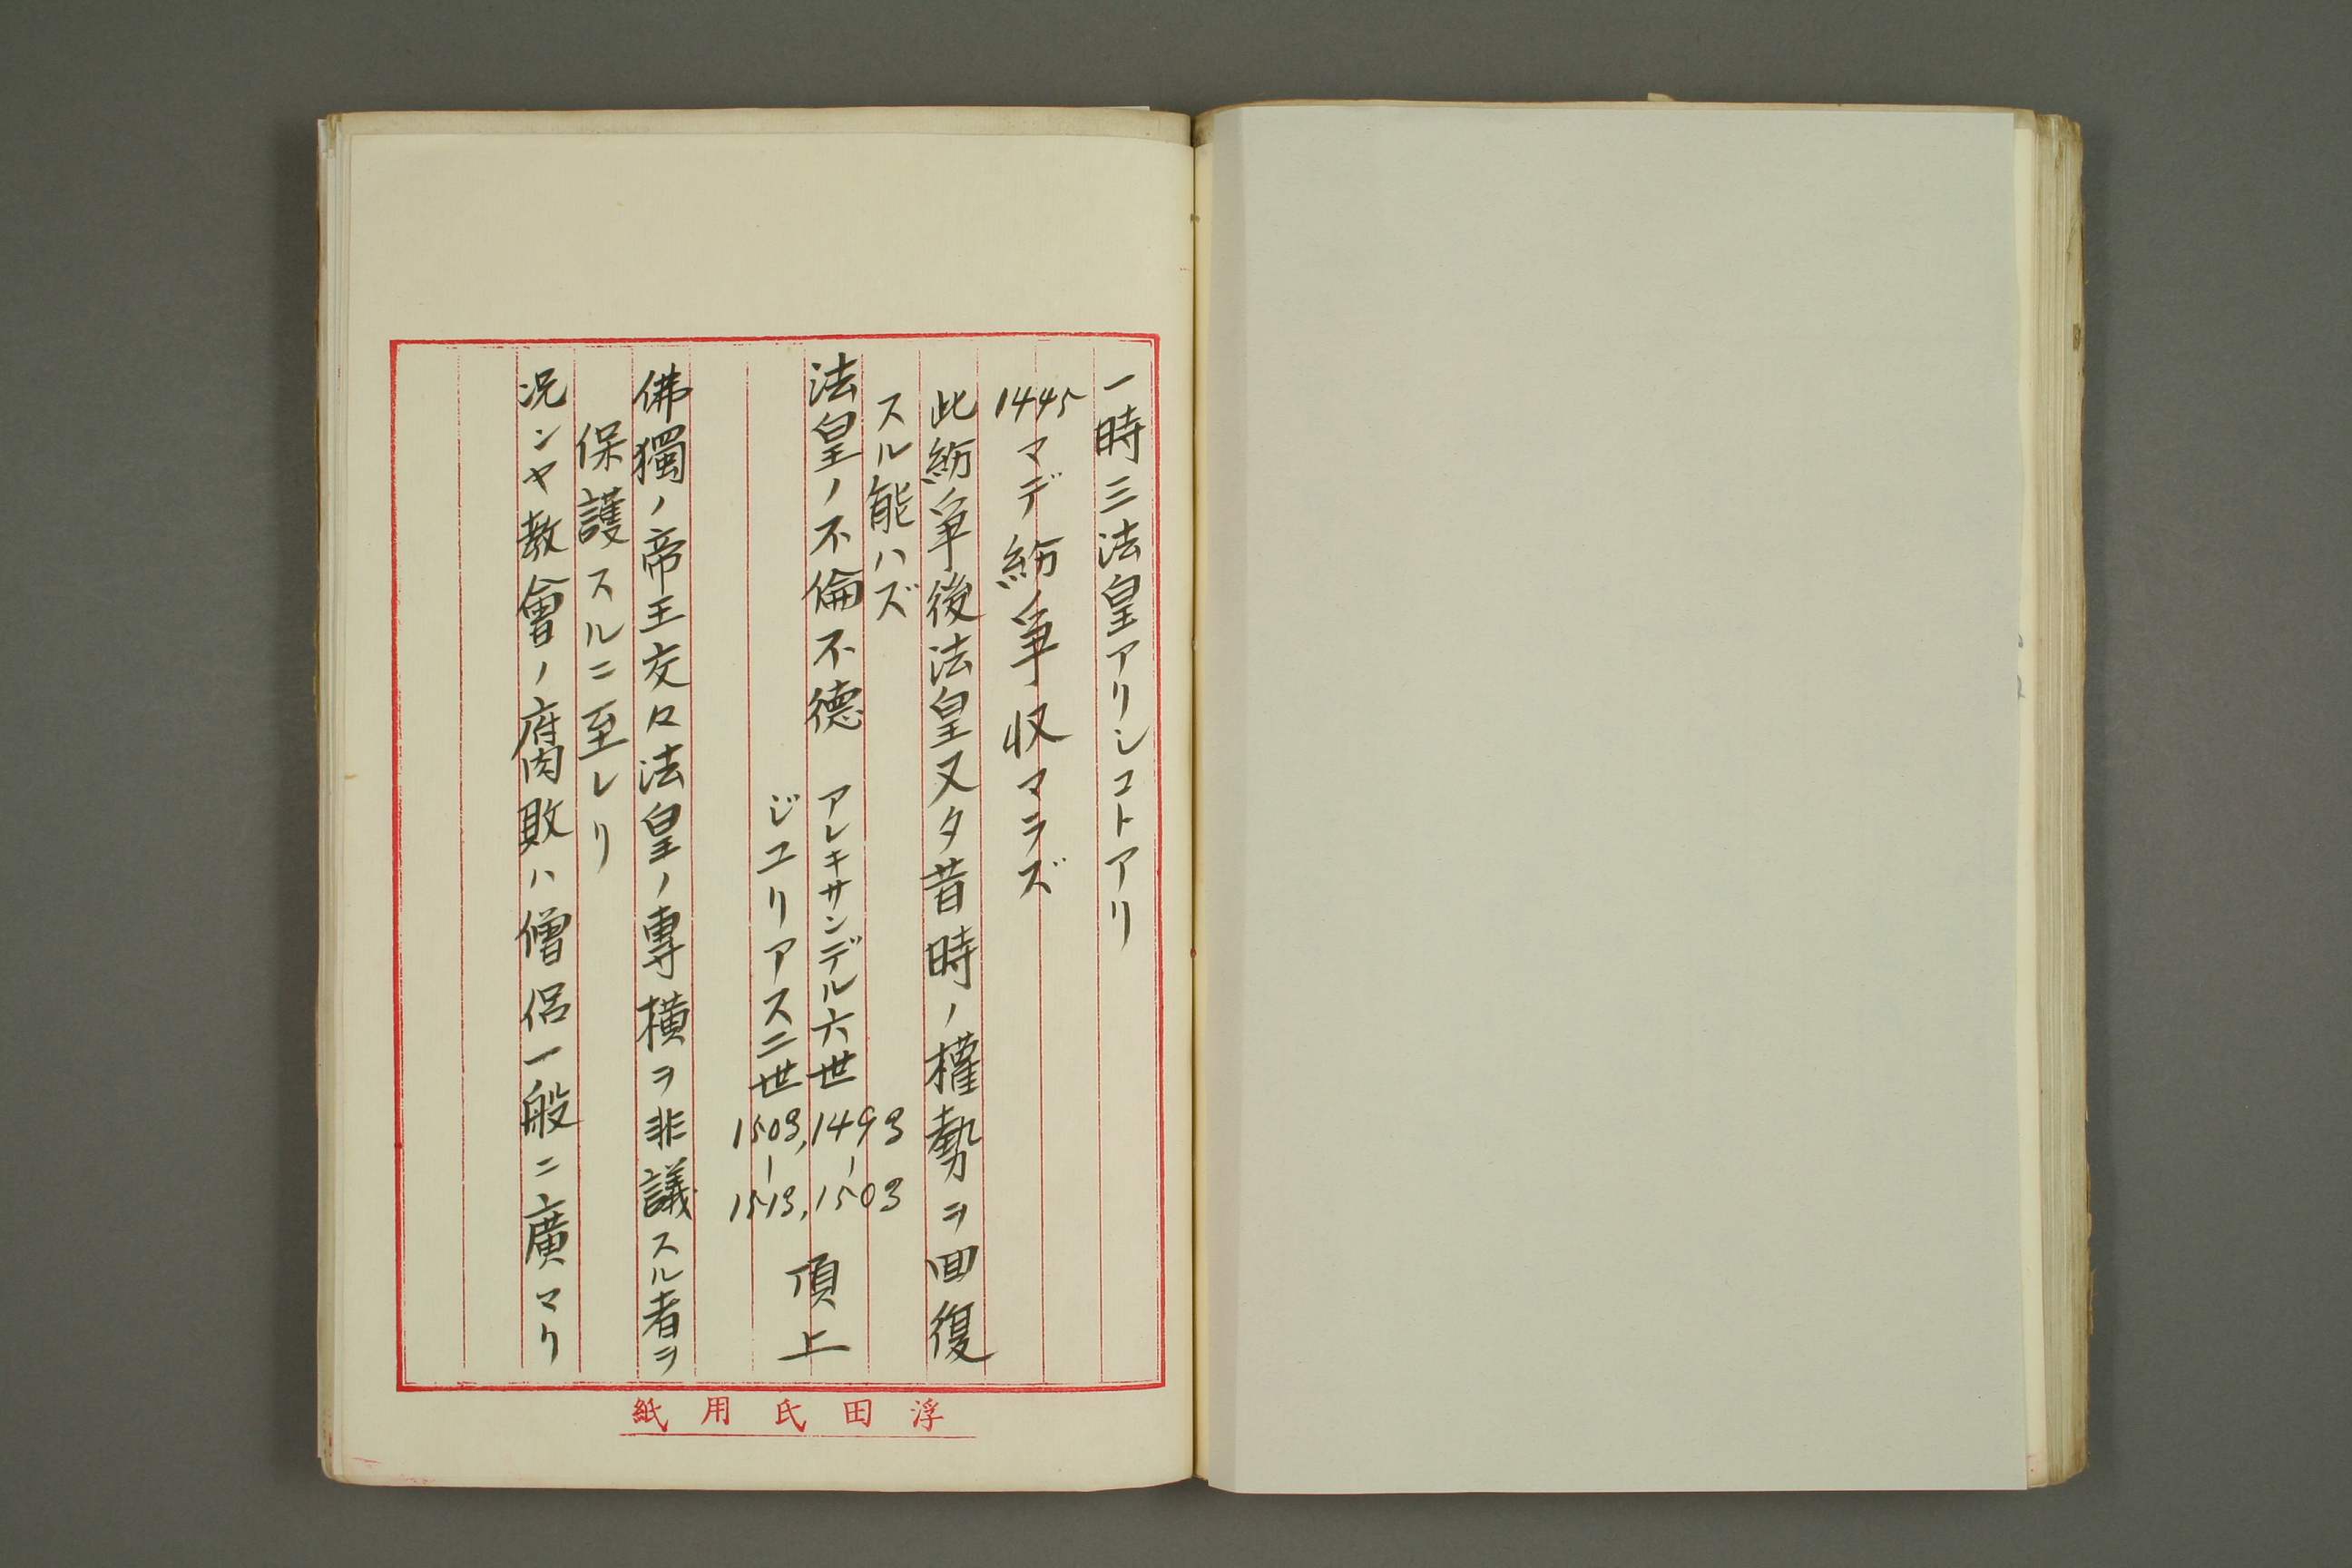 一時三法皇アリシコトアリ
1445マデ紛争収マラズ
此紛争後法皇又タ昔時ノ權勢ヲ回復
スル能ハズ
法皇ノ不倫不德 アレキサンデル六世 1493-1503
ジユリアス二世 1503,-1513, 頂上
佛獨ノ帝王交々法皇ノ專橫ヲ非議スル者ヲ
保護スルニ至レリ
況ンヤ教會ノ腐敗ハ僧侶一般ニ廣マリ
浮田氏用紙